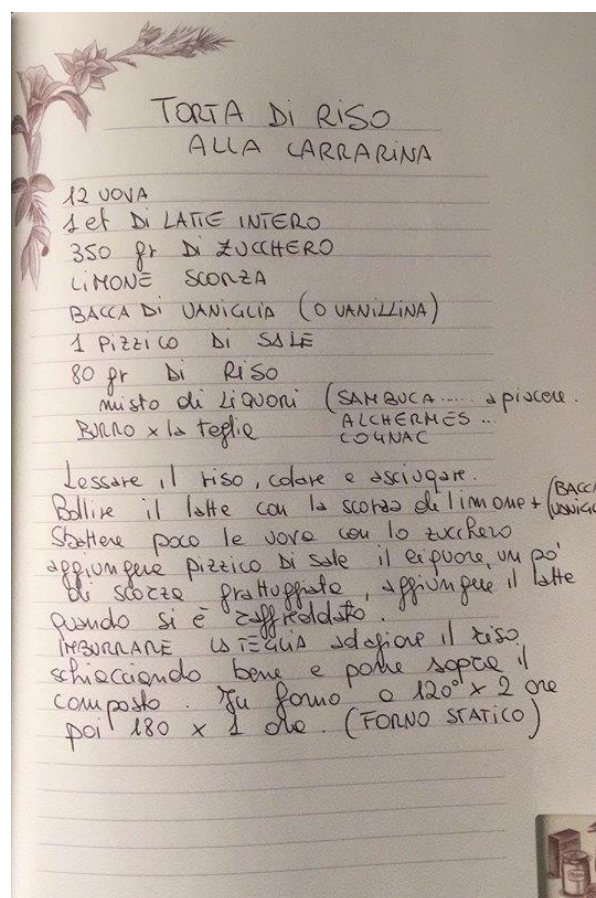 TORTA Di RiSO
ALLA CARRARiNA
12 UOVA
1 et Di LATTE INTERO
350 gr Di ZUCCHERO
LiMONE SCORZA
BACCA Di VANiGLiA (O VANiLLiNA)
1 PiZZiCO Di SALE
80 gr Di RiSO
misto di LiQUORi (SAMBUCA ..... a piacere.
ALCHERMES ..
BURRO x la teglia COGNAC
Lessare il riso, colare e asciugare.
Bollire il latte con la scorza di limone + (BACCA
Sbattere poco le uova con lo zucchero VANiGL
aggiungere pizzico Di sale il liquore, un po'
di scorza grattuggiata, aggiungere il latte
quando si è raffreddato.
IMBURRARE LA TEGLIA adagiare il riso
schiacciando bene e porre sopra il
composto. In forno a 120° x 2 ore
poi 180 x 1 ora. (FORNO STATICO)